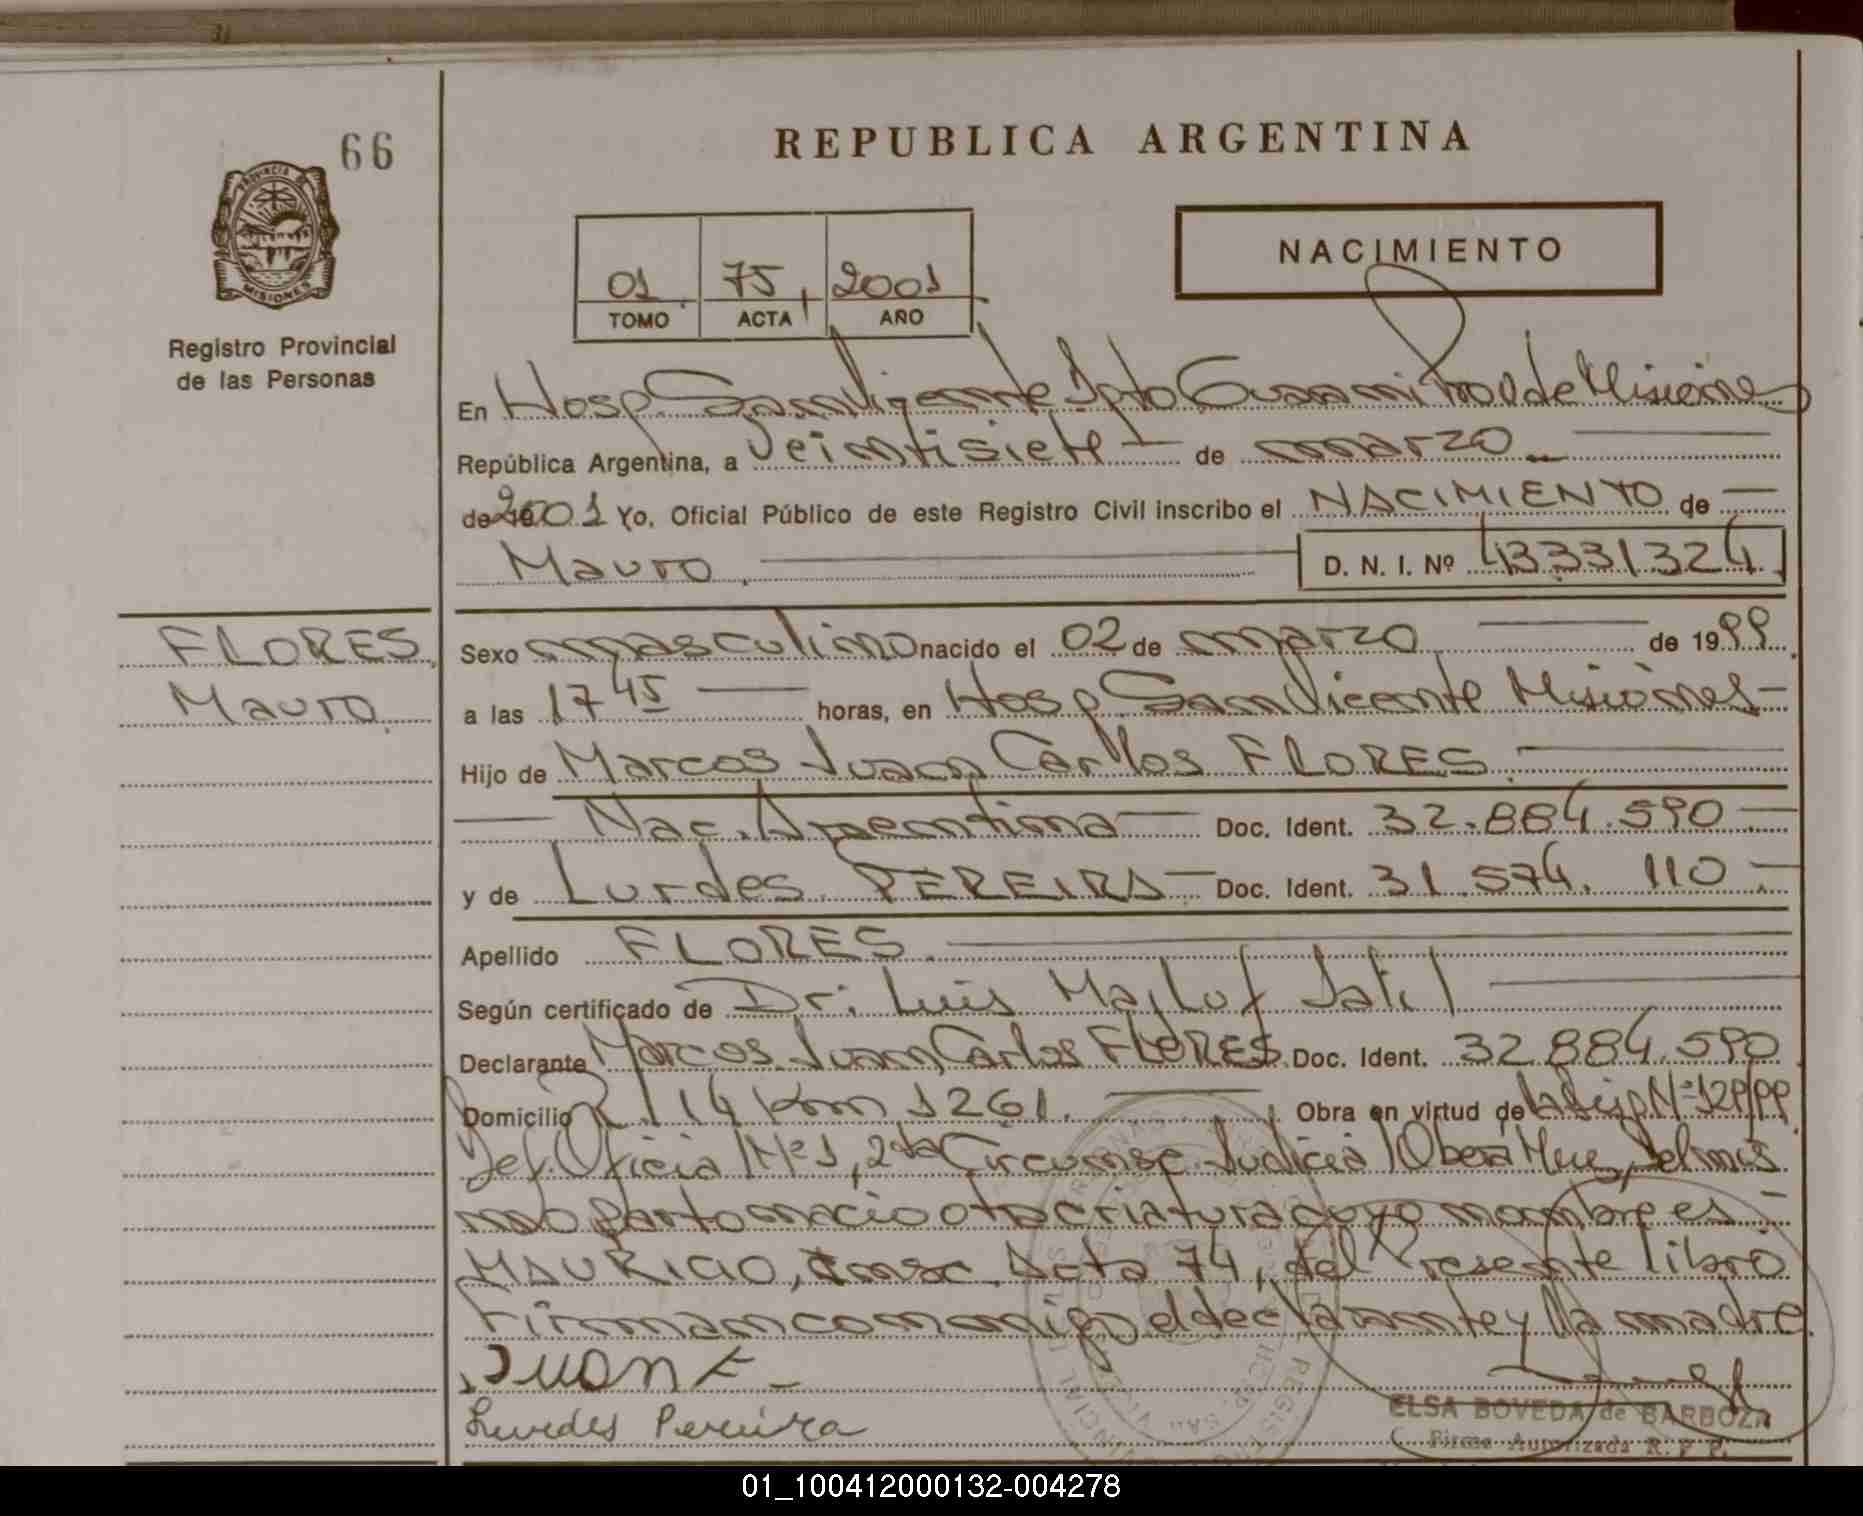 66
REPUBLICA ARGENTINA
PROVINCIA DE
MISIONES
Registro Provincial
de las Personas
01 75 2001
TOMO ACTA AÑO
NACIMIENTO
En Hosp San Vicente Dpto Guarani Prov de Misiones
República Argentina, a veintisiete - de marzo
de 2001 Yo, Oficial Público de este Registro Civil inscribo el NACIMIENTO de
Mauro. D. N. I. Nº 43331324
FLORES
Mauro
Sexo masculino nacido el 02 de marzo de 1999
a las 17 45 horas, en Hosp San Vicente Misiones -
Hijo de Marcos Juan Carlos FLORES.
Nac. Argentina Doc. Ident. 32.884.590
y de Lurdes PEREIRA - Doc. Ident. 31.574.110 -
Apellido FLORES.
Según certificado de Dr: Luis
Declarante Marcos Juan Carlos FLORES Doc. Ident. 32.884.590
Domicilio R. 14 Km 1261. Obra en virtud de Nº 129/99
Def. Oficial Nº1, 2da Circunsc. Judicial Obera Mnes, Del mis
mo parto nacio otra criatura cuyo nombre es -
MAURICIO, insc. Acta 74, del Presente libro
Firman conmigo el declarante y la madre
JUAN F_
Lurdes Pereira
ELSA BOVEDA de BARBOZA
Firma Autorizada R. P. P.
01_100412000132-004278